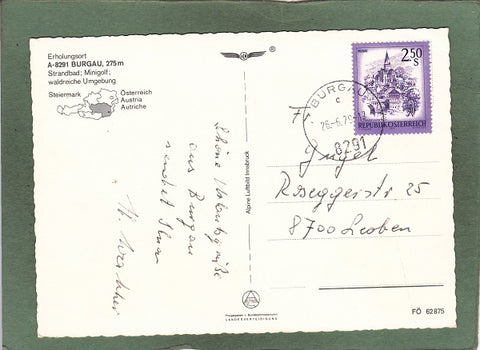 Erholungsort
A-8291 BURGAU, 275m
Strandbad; Minigolf;
waldreiche Umgebung
Steiermark
Österreich
Austria
Autriche
®
Alpine Luftbild Innsbruck
Freigegeben v. Bundesministerium f.
LANDESVERTEIDIGUNG
FÖ 62875
2.50 S
REPUBLIK ÖSTERREICH
BURGAU
c
26.-6.79.-17
8291
Schöne Urlaubsgrüße
aus Burgau
sendet
Fr.
Roseggerstr. 25
8700 Leoben